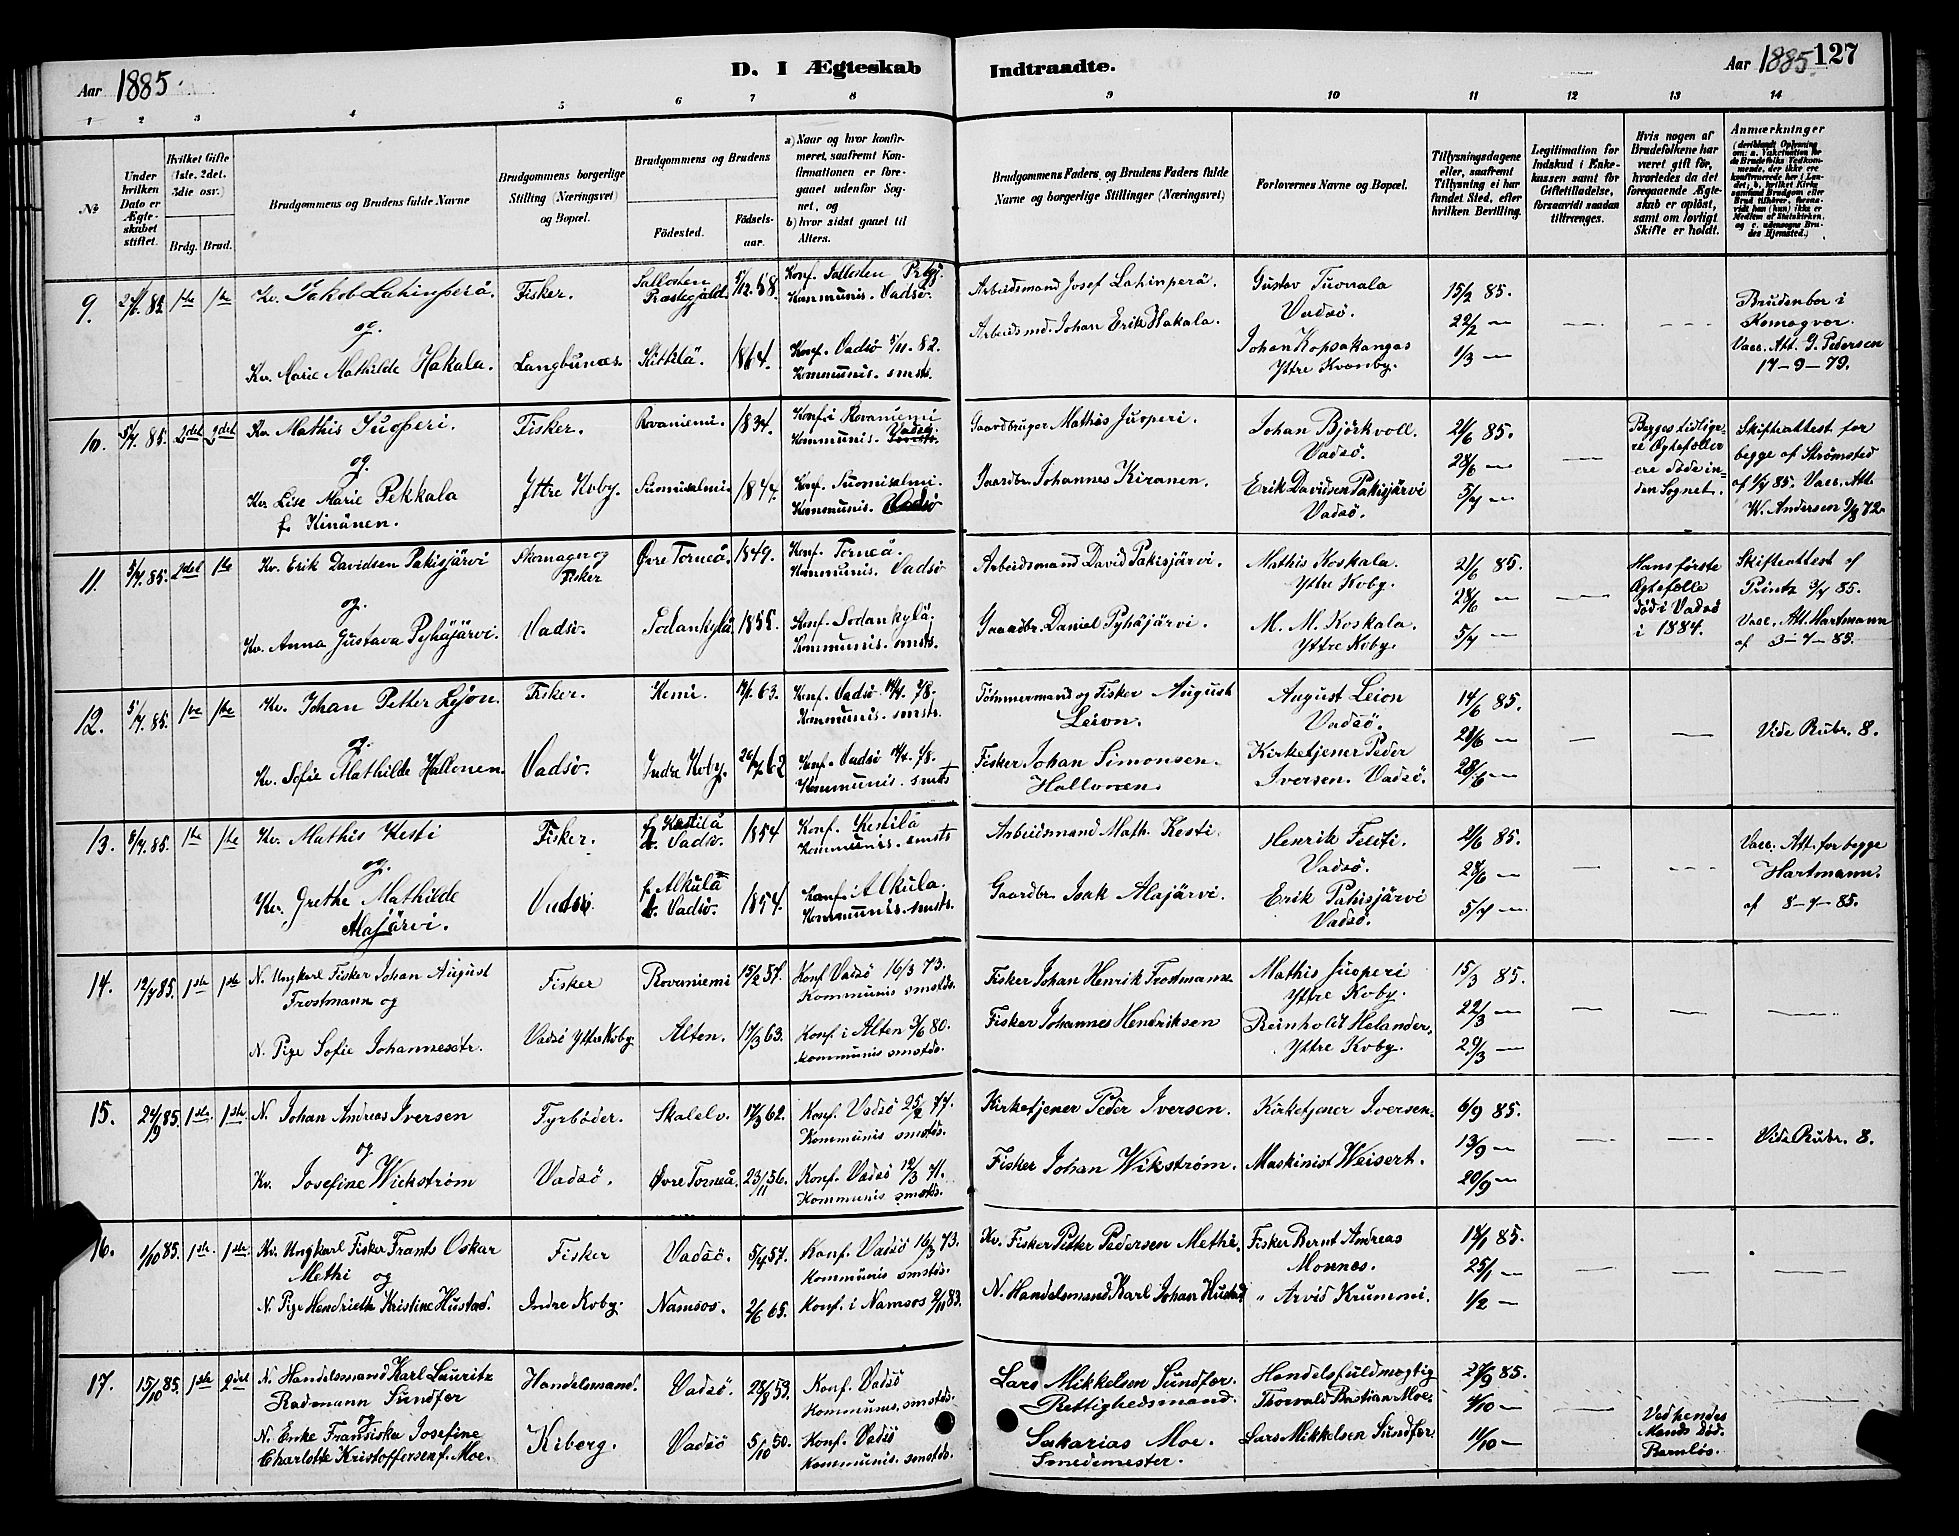 Aar 1885.
D. I Ægteskab Indtraadte.
Aar 1885. 127
1 2 3 4 5 6 7 8 9 10 11 12 13 14
№
Under hvilken Dato er Ægteskabet stiftet.
Hvilket Gifte (1ste. 2det. 3die osv.)
Brdg. Brud.
Brudgommens og Brudens fulde Navne
Brudgommens borgerlige Stilling (Næringsvei) og Bopæl.
Brudgommens og Brudens
Fødested.
Fødselsaar.
a) Naar og hvor konfirmeret, saafremt Konfirmationen er foregaaet udenfor Sognet, og
b) hvor sidst gaaet til Alters.
Brudgommens Faders, og Brudens Faders fulde Navne og borgerlige Stillinger (Næringsvei)
Forlovernes Navne og Bopæl.
Tillysningsdagene eller, saafremt Tillysning ei har fundet Sted, efter hvilken Bevilling.
Legitimation for Indskud i Enkekassen samt for Giftetilladelse, forsaavidt saadan tiltrænges.
Hvis nogen af Brudefolkene har været gift før, hvorledes da det foregaaende Ægteskab er opløst, samt om lovligt Skifte er holdt.
Anmærkninger
9. 1ste 1ste Kv. Jakob Lahinperä. Fisker. Sallosten Præstegjæld 5/12.58. Konf. Sallosten Prtgj. Kommunis. Vadsø. Arbeidsmand Josef Lahinperä Gustav Tuorala Vadsø. 15/2 85.
og 22/2 —
Kv. Marie Mathilde Hakala. Langbunæs. Kittilä. 1864. Konf. Vadsø 5/11. 82. Kommunis. smsts. Arbeidsmd. Johan Erik Hakala. Johan Kopsakangas Yttre Kvanby. 1/3 —
Bruden bor i Komagvær. Vacc. Att. J. Pedersen 17-9-79.
10. 5/7. 85. 2det 2det Kv. Mathis Juoperi. Fisker. Rovaniemi. 1834. Konf. i Rovaniemi Kommunis. Vadsø. Gaardbruger Mathis Juoperi. Johan Björkvoll. Vadsø. 21/6 85.
og 28/6 —
Kv. Lise Marie Pekkala f. Kinänen. Yttre Kvby. Suomisalmi. 1844. Konf. Suomisalmi. Kommunis. Vadsø Gaardbr. Johannes Kiranen. Erik Davidsen Pakisjärvi Vadsø. 5/7 —
Begges tidligere Ægtefæller ere døde inden Sognet. Skifteattest for begge af Strømsted af 1/7 85. Vacc. Att. W. Andersen 9/8 72.
11. 5/7. 85. 2det 1ste Kv. Erik Davidsen Pakisjärvi Skomager og Fisker Øvre Torneå. 1849. Konf. Torneå. Kommunis. Vadsø Arbeidsmand David Pakisjärvi. Mathis Koskala. Yttre Kvby. 21/6 85.
og. 28/6 —
Kv. Anna Gustava Pyhäjärvi. Vadsø. Sodankylä 1855. Konf. Sodankylä. Kommunis. smsts. Gaardbr. Daniel Pyhäjärvi. M. M. Koskala. Yttre Kvby. 5/7 —
Hans første Ægtefælle død i Vadsø i 1884. Skifteattest af Printz 3/7 85. Vacc. Att. Hartmann af 3-7-85.
12. 5/7. 85. 1ste 1ste Kv. Johan Petter Lejon. Fisker. Kemi. 63. Konf. Vadsø 14/4. 78. Kommunis. smsts. Tömmermand og Fisker August Leion. August Leion Vadsø. 14/6 85.
og. 21/6 —
Kv. Sofie Mathilde Hallonen. Vadsø. Indre Kvby. 62 Konf. Vadsø 14/4. 78. Kommunis. smsts Fisker Johan Simonsen Hallonen. Kirketjener Peder Iversen. Vadsø. 28/6 —
Vide Rubr. 8.
13. 8/7. 85. 1ste 1ste Kv. Mathis Kesti Fisker. f. Kestilä b. Vadsø. 1854 Konf. Kestilä Kommunis. smsts Arbeidsmand Math. Kesti. Henrik Feleti. Vadsø. 21/6 85.
og. 28/6 —
Kv. Grethe Mathilde Alajärvi. Vadsø. f. Alkula b. Vadsø. 1854. Konf. i Alkula. Kommunis. smsts. Gaardbr. Isak Alajärvi. Erik Pakisjärvi Vadsø. 5/7 —
Vacc. Att. for begge Hartmann. af 8-7-85.
14. 12/7 85. 1ste 1ste N. Ungkarl Fisker Johan August Trostmann og Fisker Rovaniemi 15/2 57. Konf Vadsø 16/3 73. Kommunis smstds. Fisker Johan Henrik Trostmann Mathis Juoperi Yttre Kvby. 15/3 85.
22/3 —
N. Pige Sofie Johannesdtr. Vadsø Yttre Kvby. Alten. 17/3 63. Konf. i Alten 80. Kommunis smstds. Fisker Johannes Hendriksen Reinholdt Helander, Yttre Kvby. 29/3 —
15. 24/9 85. 1ste. 1ste N. Johan Andreas Iversen Fyrbøder. Skalelv. 17/3 62. Konf. Vadsø 77. Kommunis smstds. Kirketjener Peder Iversen. Kirketjener Iversen. 6/9 85.
og 13/9 —
Kv. Josefine Wickström Vadsø. Øvre Torneå. 23/11 56. Konf. Vadsø 12/3 71. Kommunis smstds. Fisker Johan Wikstrøm. Maskinist Weisert. 20/9 —
Vide Rubr. 8.
16. 1/10 85. 1ste. 1ste. Kv. Ungkarl Fisker Frants Oskar Methi og Fisker Vadsø. 5/4 57. Konf. Vadsø 16/3 73. Kommunis smstds. Kv. Fisker Petter Pedersen Methi. Fisker Bernt Andreas Monnes. 18/1 85.
25/1 —
N. Pige Hendriette Kristine Hustad. Indre Kvby. Namsos. 2/6 65. Konf. i Namsos 83. N. Handelsmand Karl Johan Hustad " Arvid Krummi. 1/2 —
17. 15/10 85. 1ste 2det N. Handelsmand Karl Lauritz Radmann Sundfær Handelsmand. Vadsø. 53. Konf. Vadsø Kommunis, smstds. Lars Mikkelsen Sundfær. Rettighedsmand. Handelsfuldmægtig Thorvald Bastian Moe. 27/9 85.
og 4/10 —
N. Enke Fransiska Josefine Charlotte Kristoffersen f. Moe. Kiberg. Vadsø 5/10 50. Konf. Vadsø Kommunis. smstds. Sakarias Moe. Smedemester. Lars Mikkelsen Sundfær 11/10 —
Ved hendes Mands død. Barnløs.